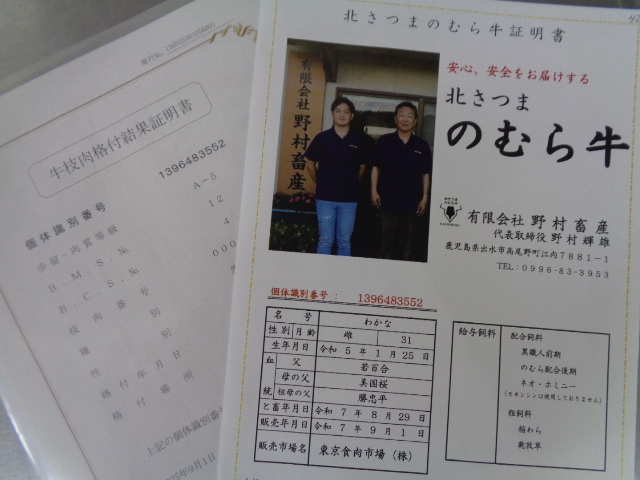 牛枝肉格付結果証明書
個体識別番号 1396483552
歩留・肉質等級 A-5
B.M.S.№ 12
B.C.S.№ 4
枝肉番号
種別
性別
格付年月日
格付場所
上記の個体識別番
北さつまのむら牛証明書
安心、安全をお届けする
北さつま
のむら牛
有限会社 野村畜産
有限会社 野村畜産
代表取締役 野村輝雄
鹿児島県出水市高尾野町江内7881-1
TEL:0996-83-3953
個体識別番号: 1396483552
名号 わかな
性別 月齢 雌 31
生年月日 令和 5年 1月 25日
血統 父 若百合
母の父 美国桜
祖母の父 勝忠平
と畜年月日 令和 7年 8月 29日
販売年月日 令和 7年 9月 1日
販売市場名 東京食肉市場(株)
給与飼料
配合飼料
黒職人前期
のむら配合後期
ネオ・ホミニー
(モネンシンは使用しておりません)
粗飼料
稲わら
乾牧草